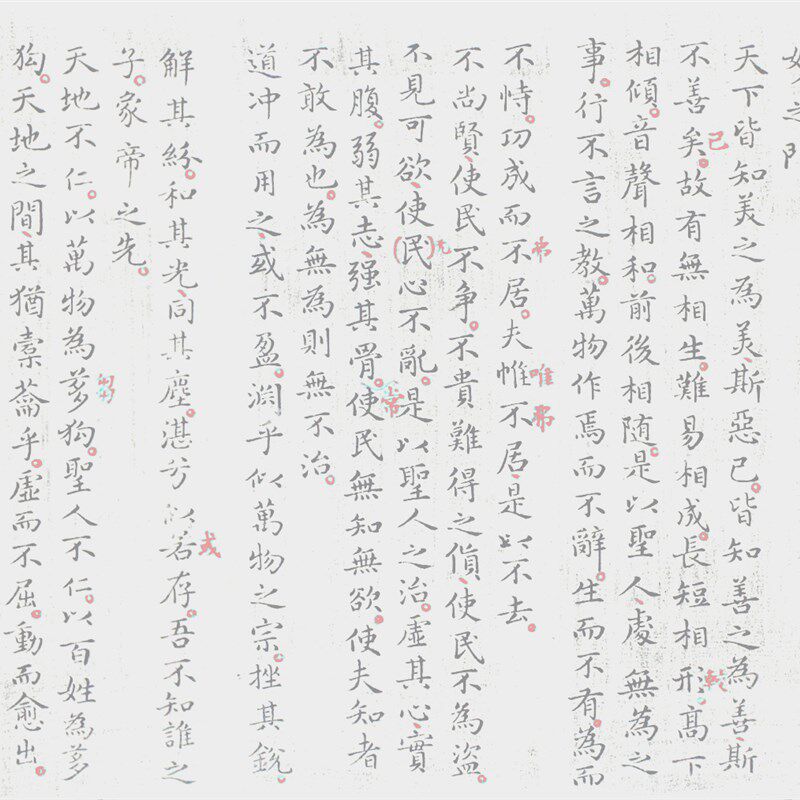 天下皆知美之為美、斯惡已。皆知善之為善、斯
不善矣。故有無相生。難易相成。長短相形。高下
已
較
相傾。音聲相和。前後相随。是以聖人、處無為之
事。行不言之教。萬物作焉而不辭。生而不有。為而
不恃。功成而不居。夫惟不居、是以不去。
弗
唯
弗
不尚賢、使民不争。不貴難得之貨、使民不為盗。
不見可欲、使(民)心不亂。是以聖人之治。虚其心、實
无
其腹。弱其志、强其骨。使民無知無欲。使夫知者
常
不敢為也。為無為則無不治。
道冲而用之、或不盈。淵乎似萬物之宗。挫其銳。
解其紛。和其光、同其塵。湛兮似若存。吾不知誰之
或
子。象帝之先。
天地不仁。以萬物為芻狗。聖人不仁。以百姓為芻
芻
狗。天地之間、其猶橐籥乎。虚而不屈。動而愈出。